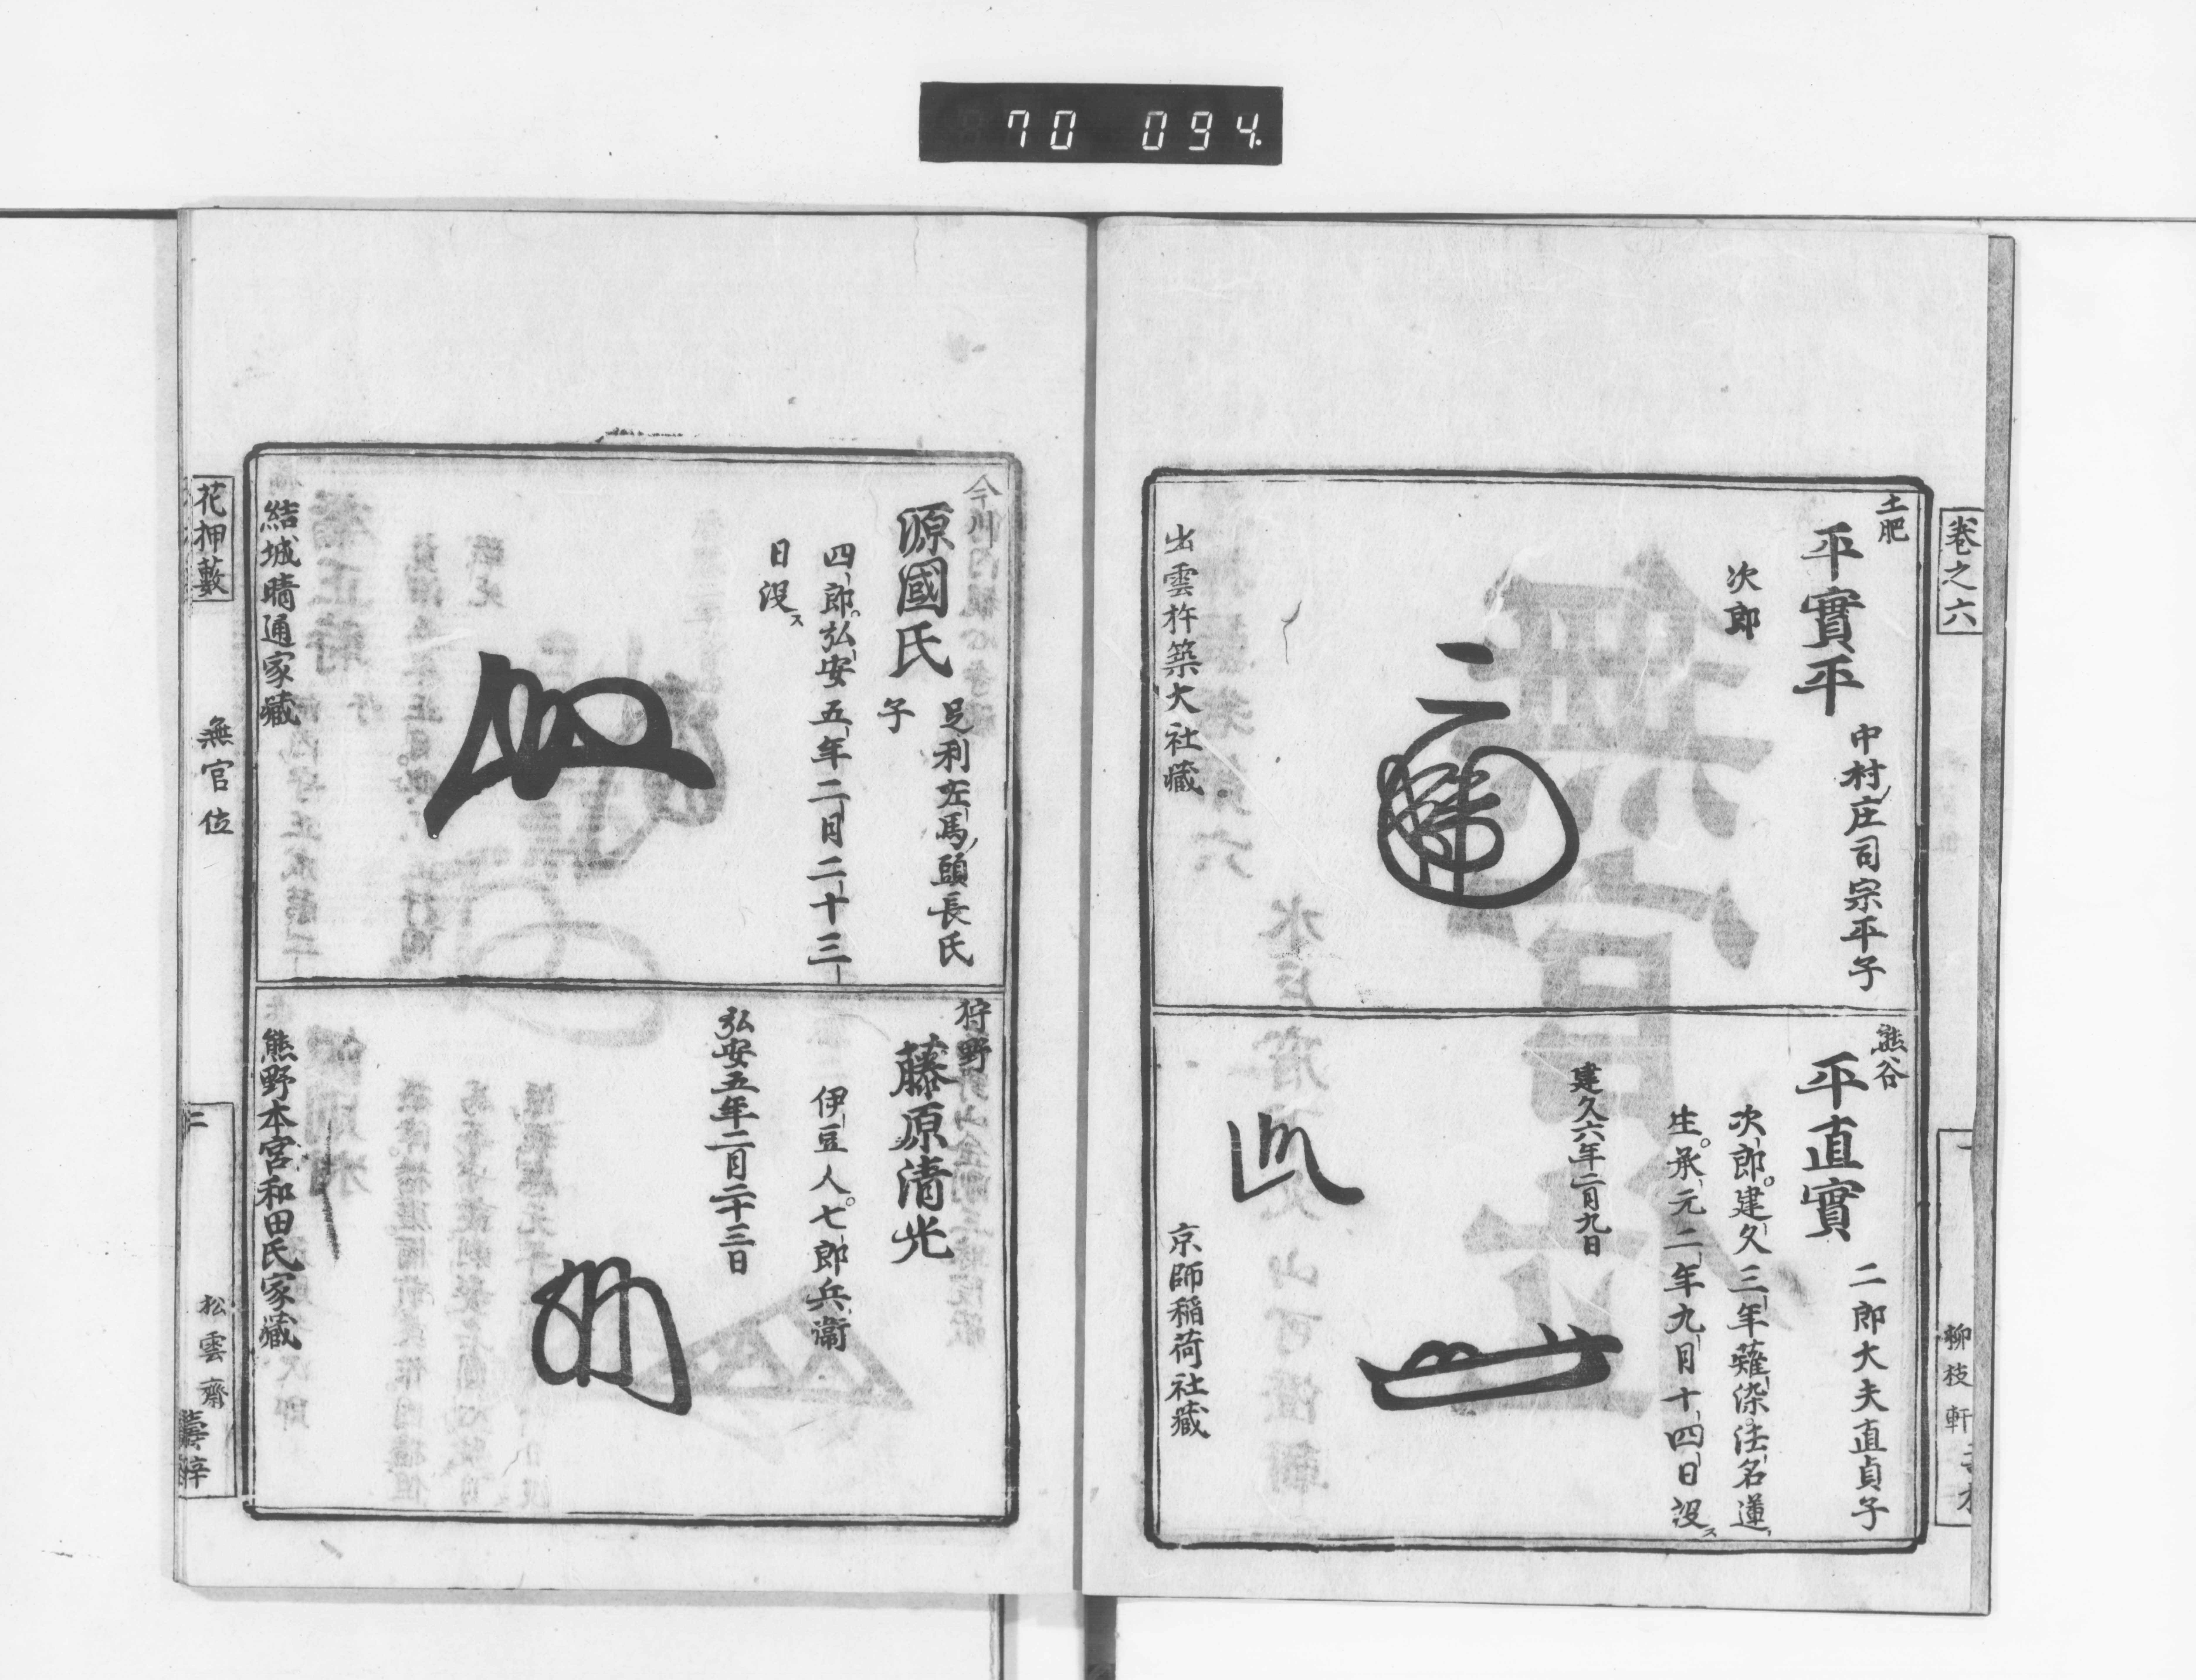 70 094.
巻之六
土肥
平實平
中村庄司宗平子
次郎
出雲杵築大社藏
熊谷
平直實
二郎大夫直貞子
次郎。建久三年薙染法名蓮
生。承元二年九月十四日没ス
建久六年二月九日
京師稲荷社藏
柳枝軒
今川
源國氏
足利左馬頭長氏
子
四郎。弘安五年二月二十三
日没ス
結城晴通家藏
狩野
藤原清光
伊豆人。七郎兵衞
弘安五年二月二十三日
熊野本宮和田氏家藏
花押藪
無官位
二
松雲齋